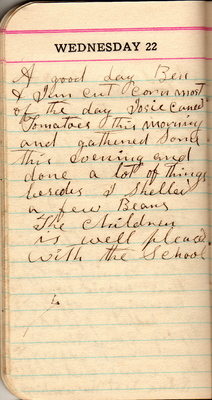 WEDNESDAY 22
A good day Ben
& Jim cut corn most
of the day Josie caned
Tomatoes this morning
and gathered some
this evening and
done a lot of things
besides & Shelled
a few Beans
The Children
is well pleased
with the School